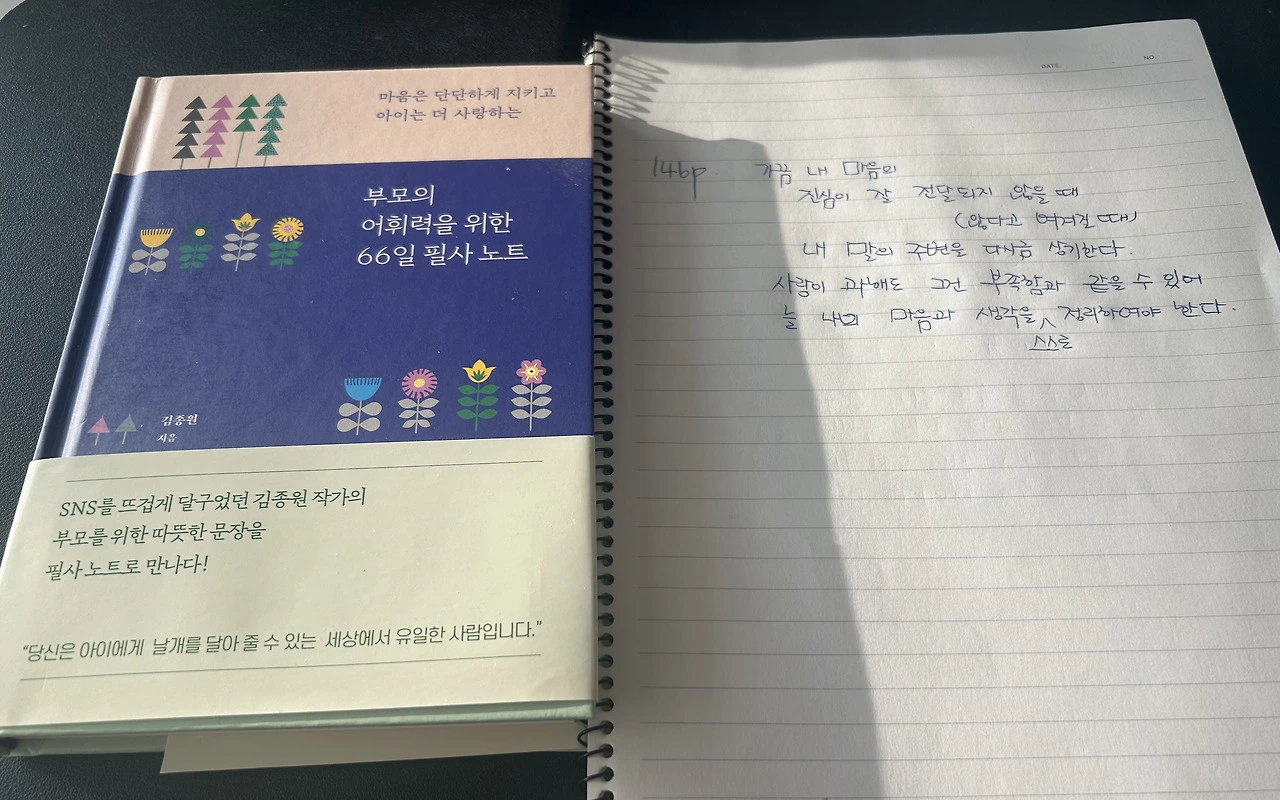 마음은 단단하게 지키고
아이는 더 사랑하는
부모의
어휘력을 위한
66일 필사 노트
김종원
지음
SNS를 뜨겁게 달구었던 김종원 작가의
부모를 위한 따뜻한 문장을
필사 노트로 만나다!
“당신은 아이에게 날개를 달아 줄 수 있는 세상에서 유일한 사람입니다.”
DATE. NO.
146p 가끔 내 마음의
진심이 잘 전달되지 않을 때
(않다고 여겨질 때)
내 말의 주변을 다시금 상기한다.
사랑이 과해도 그건 부족함과 같을 수 있어
늘 내 마음과 생각을 정리하여야 한다.
스스로